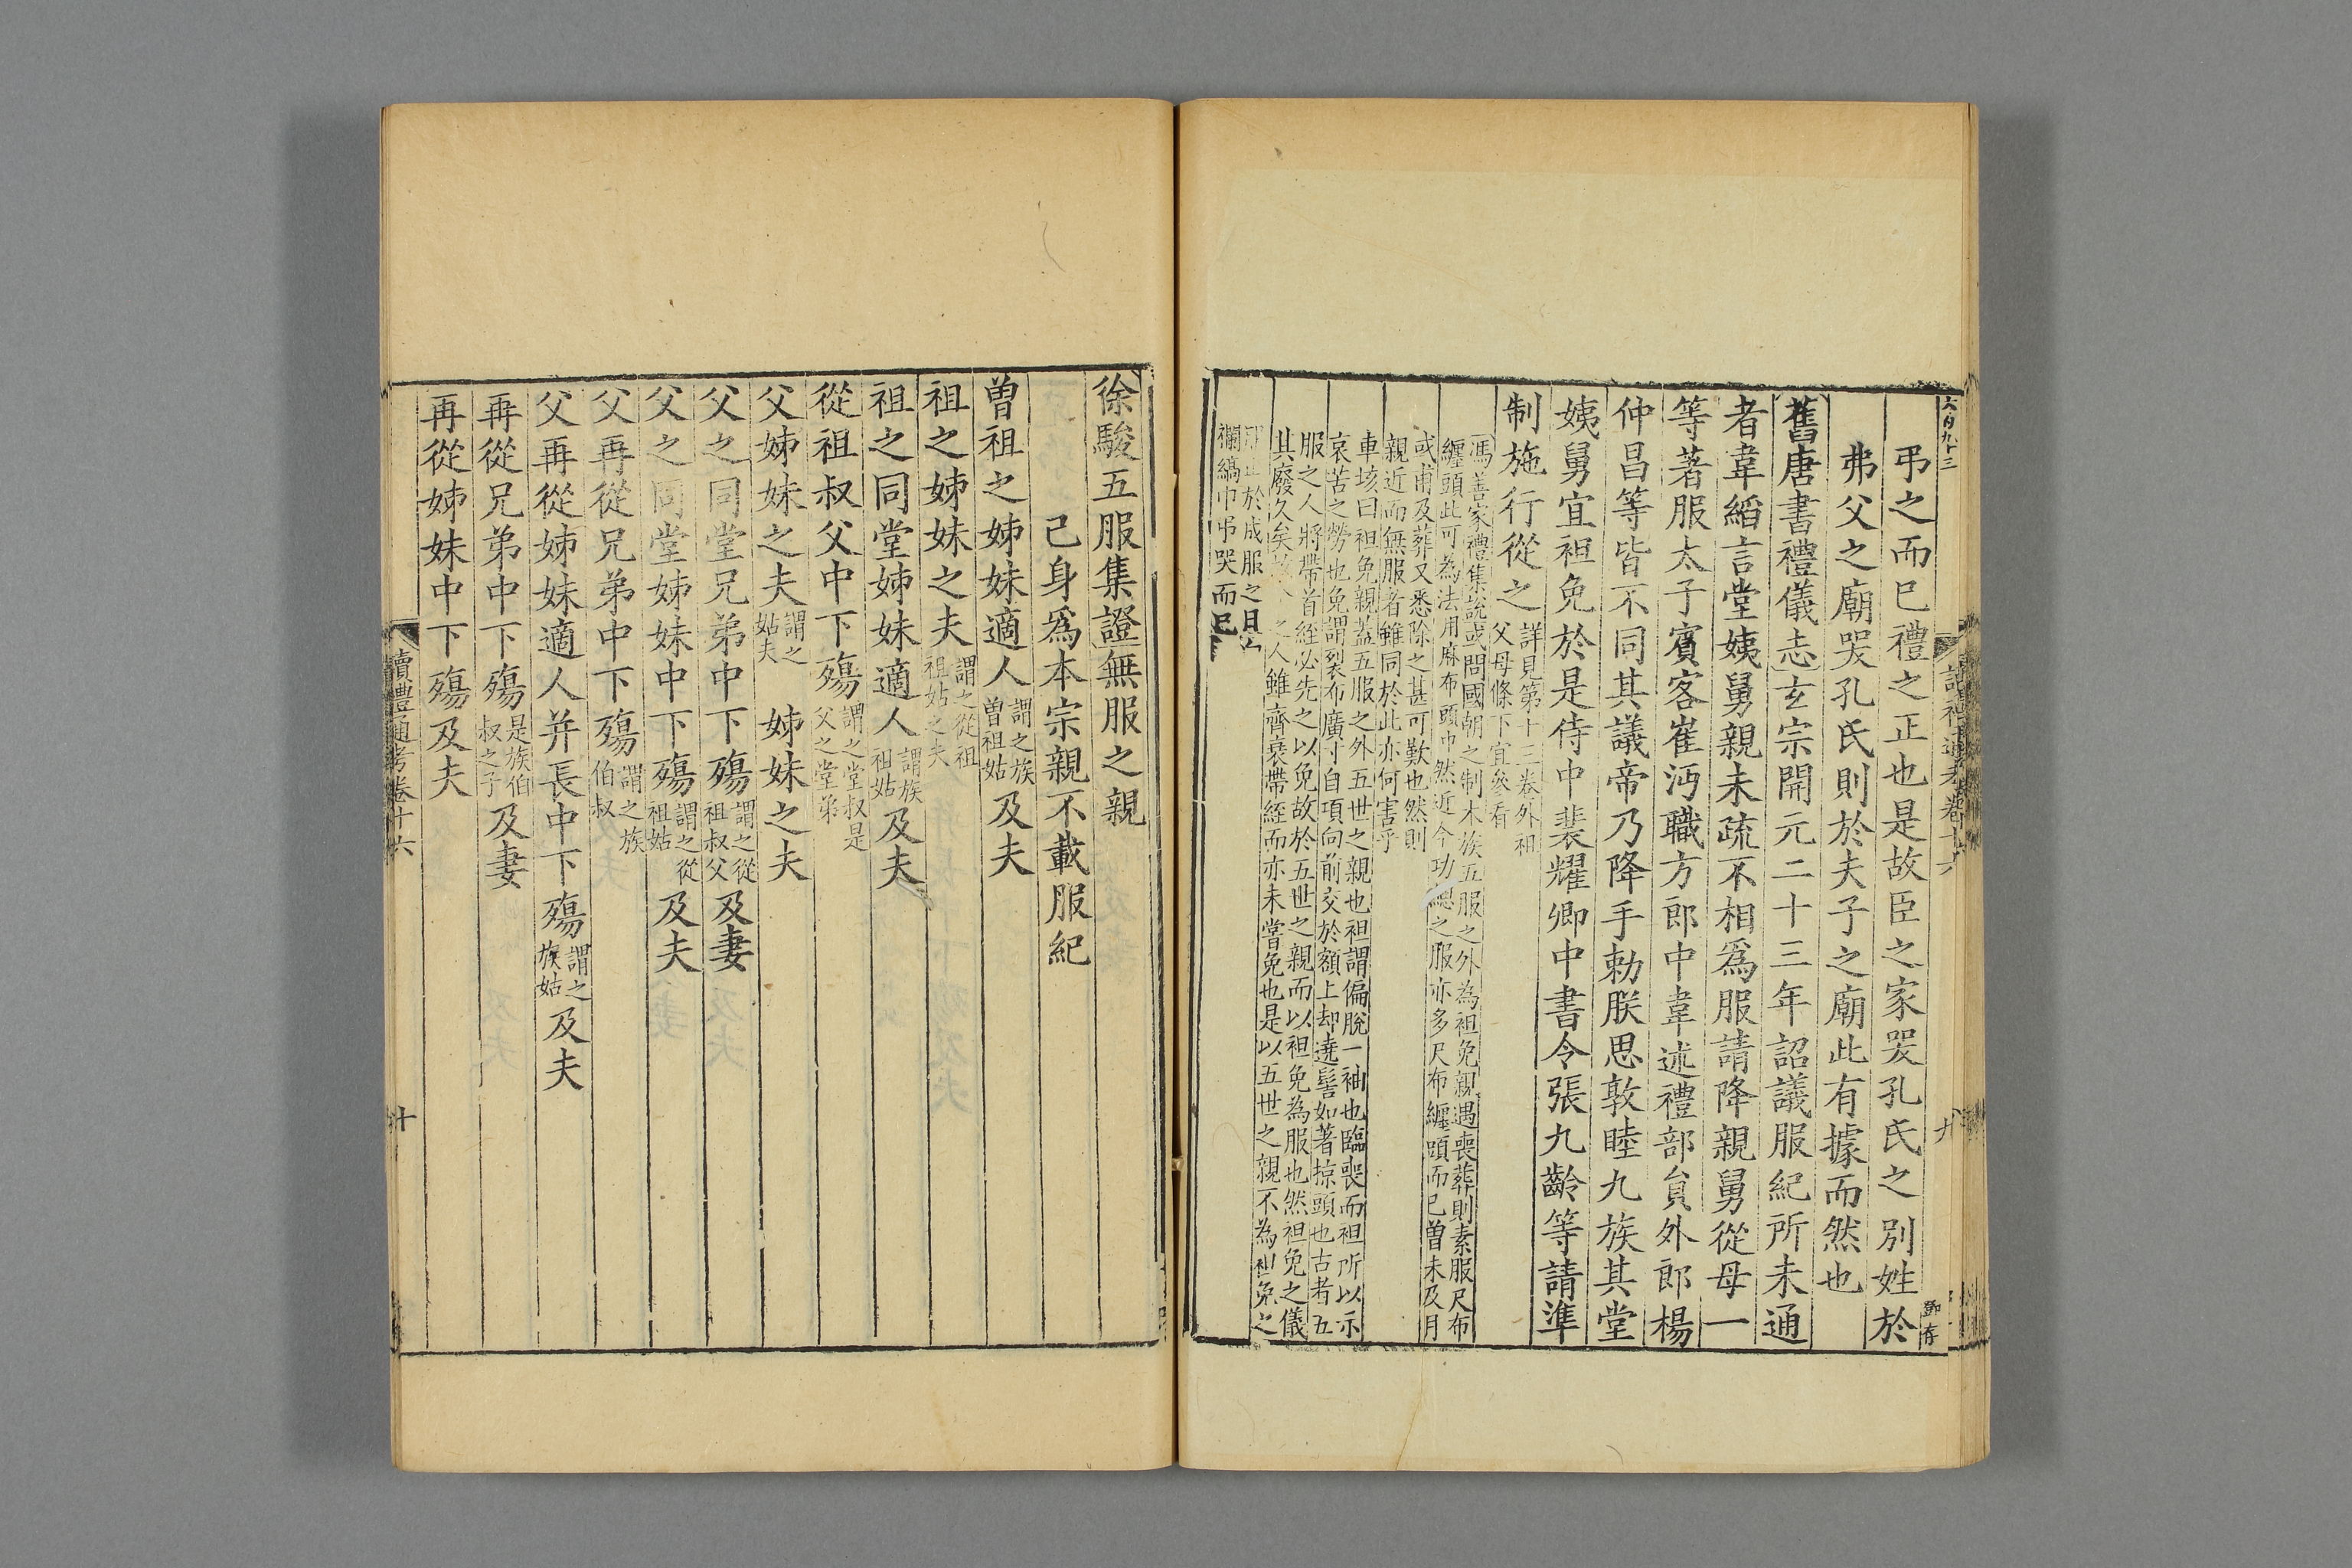 弔之而已禮之正也是故臣之家哭孔氏之別姓於
弗父之廟哭孔氏則於夫子之廟此有據而然也
舊唐書禮儀志玄宗開元二十三年詔議服紀所未通
者韋縚言堂姨舅親未疏不相爲服請降親舅從母一
等著服太子賓客崔沔職方郎中韋述禮部貟外郎楊
仲昌等皆不同其議帝乃降手勅朕思敦睦九族其堂
姨舅宜袒免於是侍中裴耀卿中書令張九齡等請準
制施行從之
詳見第十三卷外祖
父母條下宜參看
馮善家禮集說或問國朝之制本族五服之外為袒免親遇喪葬則素服尺布
纏頭此可為法用麻布頭巾然近今功緦之服亦多尺布纏頭而已曽未及月
或甫及葬又悉除之甚可歎也然則
親近而無服者雖同於此亦何害乎
車垓曰袒免親蓋五服之外五世之親也袒謂偏脫一袖也臨喪而袒所以示
哀苦之勞也免謂裂布廣寸自項向前交於額上却遶髻如著掠頭也古者五
服之人將帶首絰必先之以免故於五世之親而以袒免為服也然袒免之儀
其廢久矣之人雖齊衰帶絰而亦未嘗免也是以五世之親不為袒免之
於成服之日
襴縞巾弔哭而已
讀禮通考卷十六
九
徐駿五服集證無服之親
己身爲本宗親不載服紀
曽祖之姊妹適人
謂之族
曽祖姑
及夫
祖之姊妹之夫
謂之從祖
祖姑之夫
祖之同堂姊妹適人
謂族
祖姑
及夫
從祖叔父中下殤
謂之堂叔是
父之堂弟
父姊妹之夫
謂之
姑夫
姊妹之夫
父之同堂兄弟中下殤
謂之從
祖叔父
及妻
父之同堂姊妹中下殤
謂之從
祖姑
及夫
父再從兄弟中下殤
謂之族
伯叔
父再從姊妹適人并長中下殤
謂之
族姑
及夫
再從兄弟中下殤
是族伯
叔之子
及妻
再從姊妹中下殤及夫
讀禮通考卷十六
十